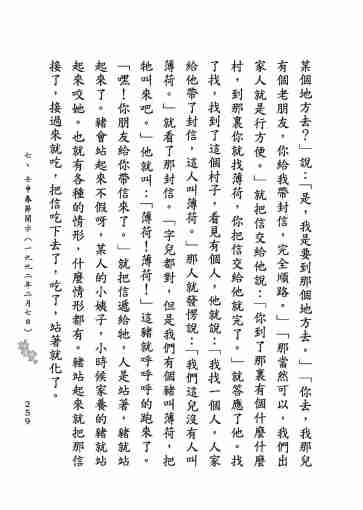 某個地方去？」說：「是，我是要到那個地方去。」「你去，我那兒
有個老朋友。你給我帶封信，完全順路。」「那當然可以，我們出
家人就是行方便。」就把信交給他說：「你到了那裏有個什麼什麼
村，到那裏你就找薄荷，你把信交給他就完了。」就答應了他。找
了找，找到了這個村子，看見有個人，他就說：「我找一個人，人家
給他帶了封信，這人叫薄荷。」那人就發愣說：「我們這兒沒有人叫
薄荷。」就看了那封信。「字兒都對，但是我們有個豬叫薄荷，把
牠叫來吧。」他就叫：「薄荷！薄荷！」這豬就呼呼呼的跑來了。
「嘿！你朋友給你帶信來了。」就把信遞給牠。人是站著，豬就站
起來了。豬會站起來不假呀。某人的小姨子，小時候家養的豬就站
起來咬她。也就有各種的情形，什麼情形都有。豬站起來就把那信
接了，接過來就吃，把信吃下去了，吃了，站著就化了。
七、壬申春節開示（一九九二年二月七日）
259